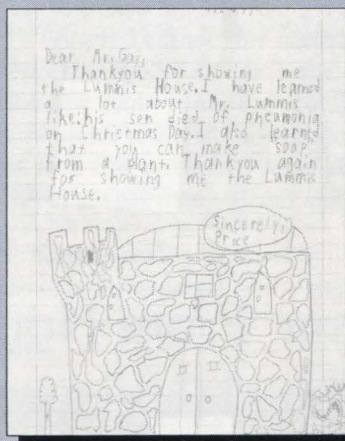 Dear Mr. Gary,
Thankyou for showing me
the Lummis House. I have learned
a lot about Mr. Lummis
like: his son died of pneumonia
on Christmas Day. I also learned
that you can make soap
from a plant. Thankyou again
for showing me the Lummis
House.
Sincerely,
Price